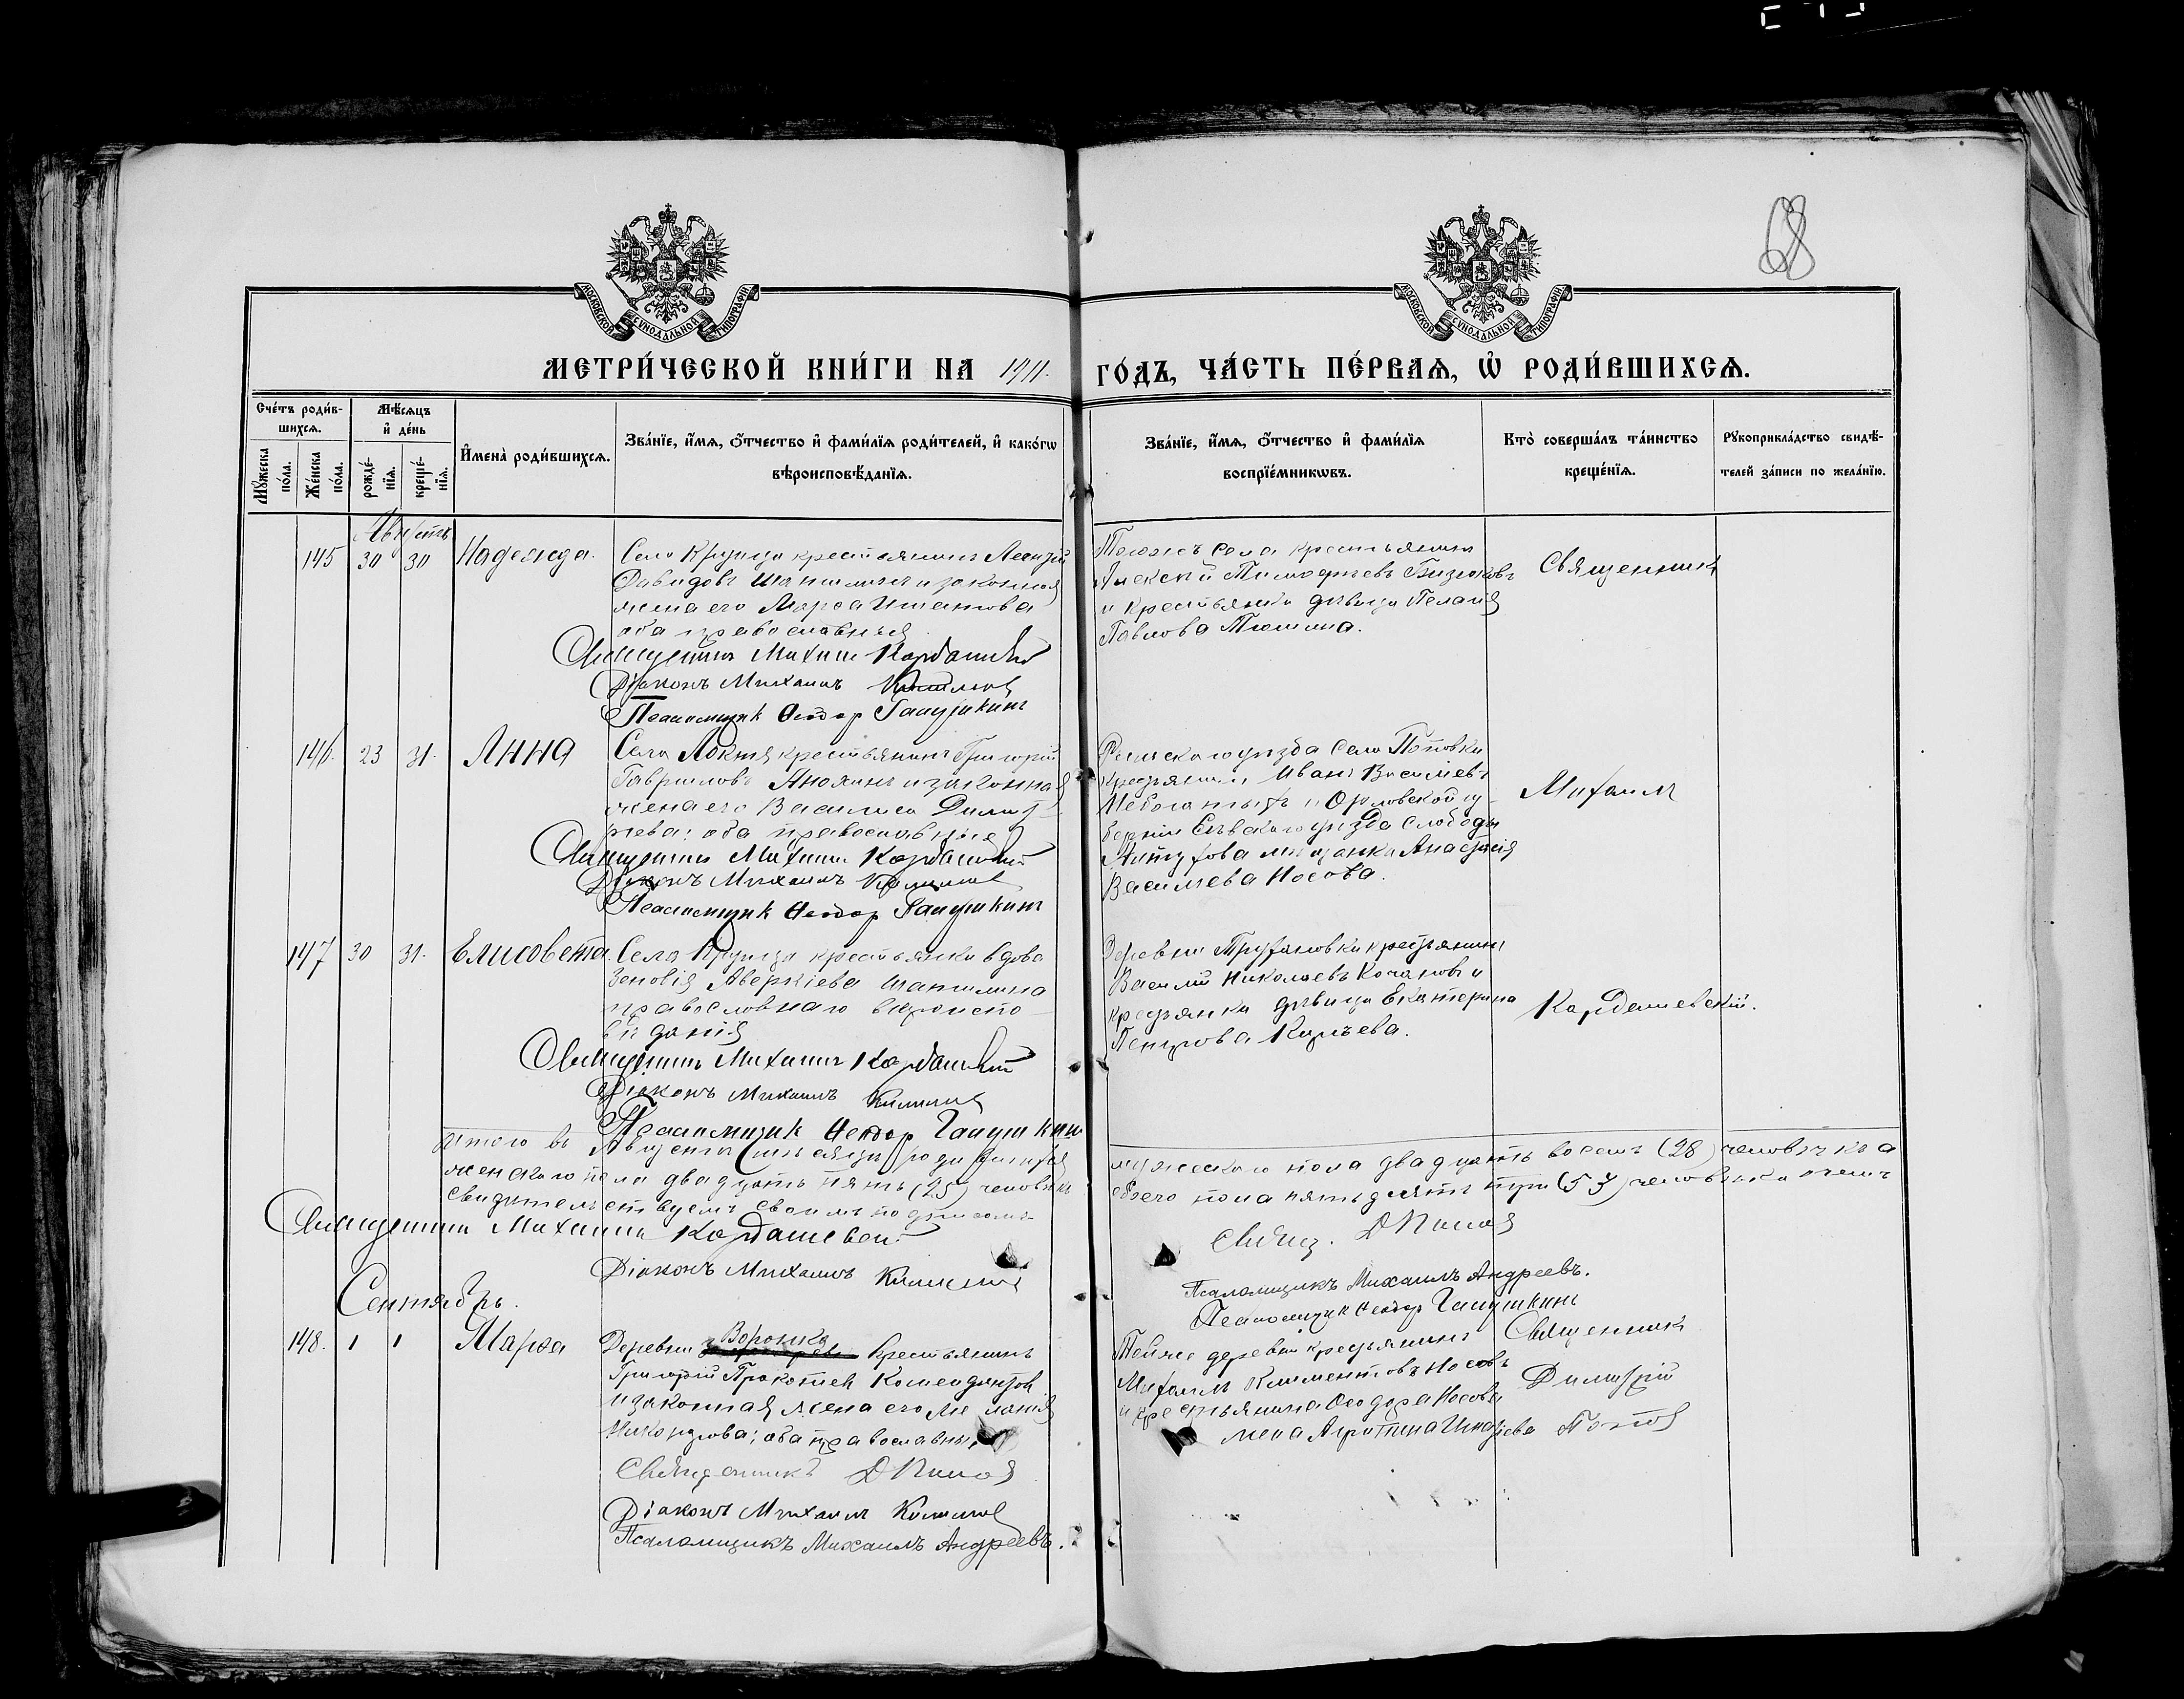 68
МОСКОВСКОЙ СУНОДАЛЬНОЙ ТИПОГРАФІИ
МОСКОВСКОЙ СУНОДАЛЬНОЙ ТИПОГРАФІИ
МЕТРИ́ЧЕСКОЙ КНИ́ГИ НА 1911. ГО́ДЪ, ЧА́СТЬ ПЕ́РВАѦ, Ѡ҆ РОДИ́ВШИХСѦ.
Сче́тъ роди́в-
шихсѧ.
Мꙋ́жеска
по́ла.
Же́нска
по́ла.
Мѣ́сѧцъ
и҆ де́нь
рожде́-
нїѧ.
креще́-
нїѧ.
И҆мена̀ роди́вшихсѧ.
Зва́нїе, и҆́мѧ, ѻ҆́тчество и҆ фами́лїѧ роди́телей, и҆ како́гѡ
вѣроисповѣ́данїѧ.
Зва́нїе, и҆́мѧ, ѻ҆́тчество и҆ фами́лїѧ
воспрїе́мникѡвъ.
Кто̀ соверша́лъ та́инство
креще́нїѧ.
Рꙋкоприкла́дство свидѣ́-
телей за́писи по жела́нїю.
Августъ
145 30 30 Надежда. Села Крупца крестьянинъ
Давидовъ Шатилинъ и законная
жена его Марѳа Игнатова
оба православныя
Священникъ Михаилъ Кардашевскій
Діаконъ Михаилъ
Псаломщикъ Ѳеодоръ Галушкинъ
Тогожъ села крестьянинъ
Алексѣй Тимофѣевъ Бизюковъ
и крестьянка дѣвица Пелагія
Павлова Тюшина.
Священникъ
146. 23 31. Анна Села Локтя крестьянинъ Григорій
Гавриловъ Анохинъ и законная
жена его Василиса Димит-
ріева; оба православные
Священникъ Михаилъ Кардашевскій
Діаконъ Михаилъ
Псаломщикъ Ѳеодоръ Галушкинъ
уѣзда села Поповки
крестьянинъ Иванъ Васильевъ
и Орловской гу-
берніи Сѣвскаго уѣзда слободы
мѣщанка Анастасія
Васильева Носова.
Михаилъ
147 30 31. Елисовета. Села Крупца крестьянка вдова
Зеновія Аверкіева Шатилина
православнаго вѣроиспо-
вѣданія
Священникъ Михаилъ Кардашевскій
Діаконъ Михаилъ
Псаломщикъ Ѳеодоръ Галушкинъ
Деревни Труфановки крестьянинъ
Василій Николаевъ Качановъ и
крестьянка дѣвица Екатерина
Петрова
Кардашевскій.
Итого въ Августѣ мѣсяцѣ родившихся мужескаго пола двадцать восемь (28) человѣкъ а
женскаго пола двадцать пять (25) человѣкъ обоего пола пятьдесятъ три (53) человѣка о чемъ
свидѣтельствуемъ своимъ подписомъ
Священникъ Михаилъ Кардашевскій
Священ. Д Поповъ
Діаконъ Михаилъ
Псаломщикъ Михаилъ Андреевъ.
Псаломщикъ Ѳеодоръ Галушкинъ
Сентябрь.
148. 1 1 Марѳа Деревни Воронка крестьянинъ
Григорій Прокопіевъ Комендантовъ
и законная жена его Меланія
Никонорова; оба православны.
Священникъ Д Поповъ
Діаконъ Михаилъ
Псаломщикъ Михаилъ Андреевъ.
Той же деревни крестьянинъ
Михаилъ Климентовъ Носовъ
и крестьянина Ѳеодора Носова
жена Агрипина Игнатіева
Священникъ
Димитрій
Поповъ